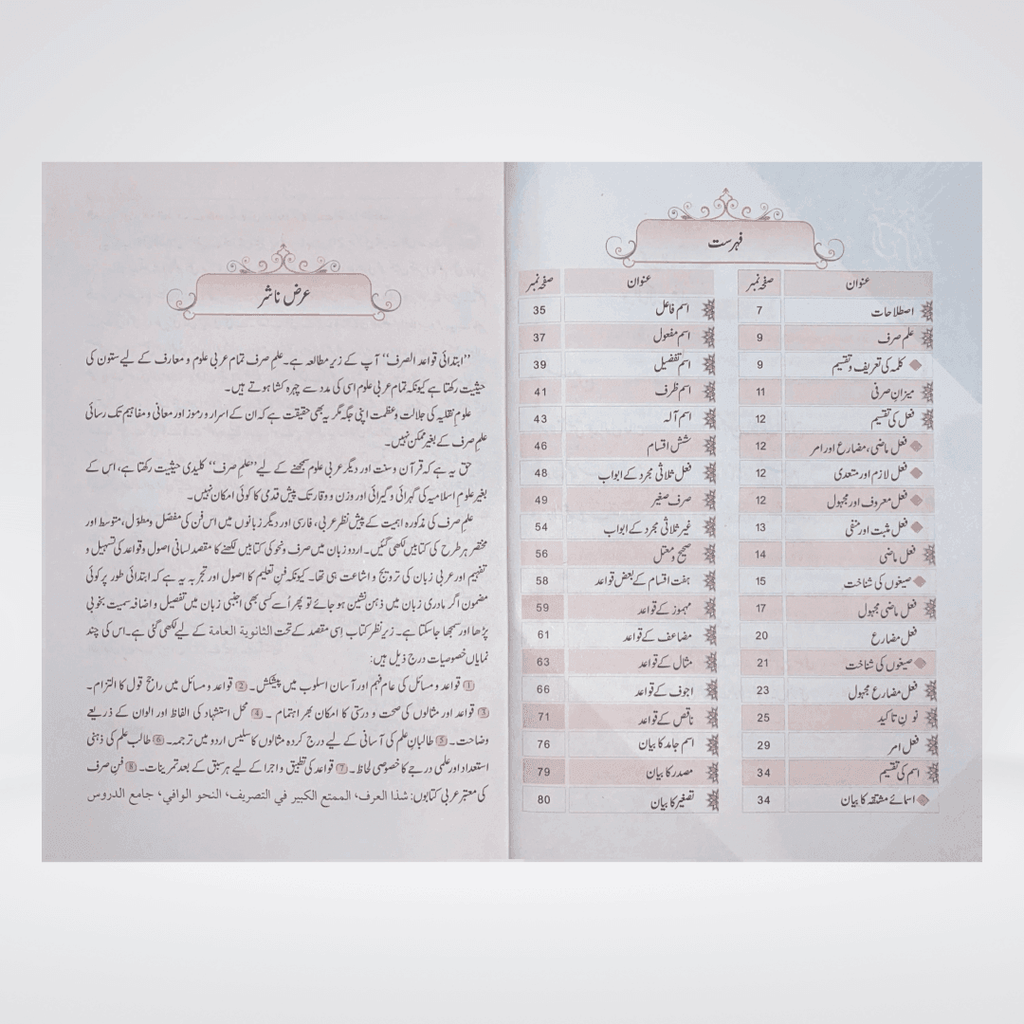 فہرست
عنوان صفحہ نمبر
اصطلاحات 7
علم صرف 9
کلمہ کی تعریف و تقسیم 9
میزانِ صرفی 11
فعل کی تقسیم 12
فعل ماضی، مضارع اور امر 12
فعل لازم اور متعدی 12
فعل معروف اور مجہول 12
فعل مثبت اور منفی 13
فعل ماضی 14
صیغوں کی شناخت 15
فعل ماضی مجہول 17
فعل مضارع 20
صیغوں کی شناخت 21
فعل مضارع مجہول 23
نونِ تاکید 25
فعل امر 29
اسم کی تقسیم 34
اسمائے مشتقہ کا بیان 34
عنوان صفحہ نمبر
اسم فاعل 35
اسم مفعول 37
اسم تفضیل 39
اسم ظرف 41
اسم آلہ 43
شش اقسام 46
فعل ثلاثی مجرد کے ابواب 48
صرف صغیر 49
غیر ثلاثی مجرد کے ابواب 54
صحیح و معتل 56
ہفت اقسام کے بعض قواعد 58
مہموز کے قواعد 59
مضاعف کے قواعد 61
مثال کے قواعد 63
اجوف کے قواعد 66
ناقص کے قواعد 71
اسم جامد کا بیان 76
مصدر کا بیان 79
تصغیر کا بیان 80
عرض ناشر
’’ابتدائی قواعد الصرف‘‘ آپ کے زیر مطالعہ ہے۔ علم صرف تمام عربی علوم و معارف کے لیے ستون کی
حیثیت رکھتا ہے کیونکہ تمام عربی علوم اسی کی مدد سے چہرہ کشا ہوتے ہیں۔
علوم نقلیہ کی جلالت و عظمت اپنی جگہ مگر یہ بھی حقیقت ہے کہ ان کے اسرار و رموز اور معانی و مفاہیم تک رسائی
علم صرف کے بغیر ممکن نہیں۔
حق یہ ہے کہ قرآن و سنت اور دیگر عربی علوم سمجھنے کے لیے ’’علم صرف‘‘ کلیدی حیثیت رکھتا ہے، اس کے
بغیر علوم اسلامیہ کی گہرائی و گیرائی اور وزن و وقار تک پیش قدمی کا کوئی امکان نہیں۔
علم صرف کی مذکورہ اہمیت کے پیش نظر عربی، فارسی اور دیگر زبانوں میں اس فن کی مفصل و مطوّل، متوسط اور
مختصر ہر طرح کی کتابیں لکھی گئیں۔ اردو زبان میں صرف و نحو کی کتابیں لکھنے کا مقصد لسانی اصول و قواعد کی تسہیل و
تفہیم اور عربی زبان کی ترویج و اشاعت ہی تھا۔ کیونکہ فنِ تعلیم کا اصول اور تجربہ یہ ہے کہ ابتدائی طور پر کوئی
مضمون اگر مادری زبان میں ذہن نشین ہو جائے تو پھر اُسے کسی بھی اجنبی زبان میں تفصیل و اضافہ سمیت بخوبی
پڑھا اور سمجھا جاسکتا ہے۔ زیر نظر کتاب اسی مقصد کے تحت الثانویة العامة کے لیے لکھی گئی ہے۔ اس کی چند
نمایاں خصوصیات درج ذیل ہیں:
1 قواعد و مسائل کی عام فہم اور آسان اسلوب میں پیشکش۔ 2 قواعد و مسائل میں راجح قول کا التزام۔
3 قواعد اور مثالوں کی صحت و درستی کا امکان بھر اہتمام۔ 4 محل استشہاد کی الفاظ اور الوان کے ذریعے
وضاحت۔ 5 طالبانِ علم کی آسانی کے لیے درج کردہ مثالوں کا سلیس اردو میں ترجمہ۔ 6 طالب علم کی ذہنی
استعداد اور علمی درجے کا خصوصی لحاظ۔ 7 قواعد کی تطبیق و اجرا کے لیے ہر سبق کے بعد تمرینات۔ 8 فن صرف
کی معتبر عربی کتابوں: شذا العرف، الممتع الكبير في التصريف، النحو الوافي، جامع الدروس